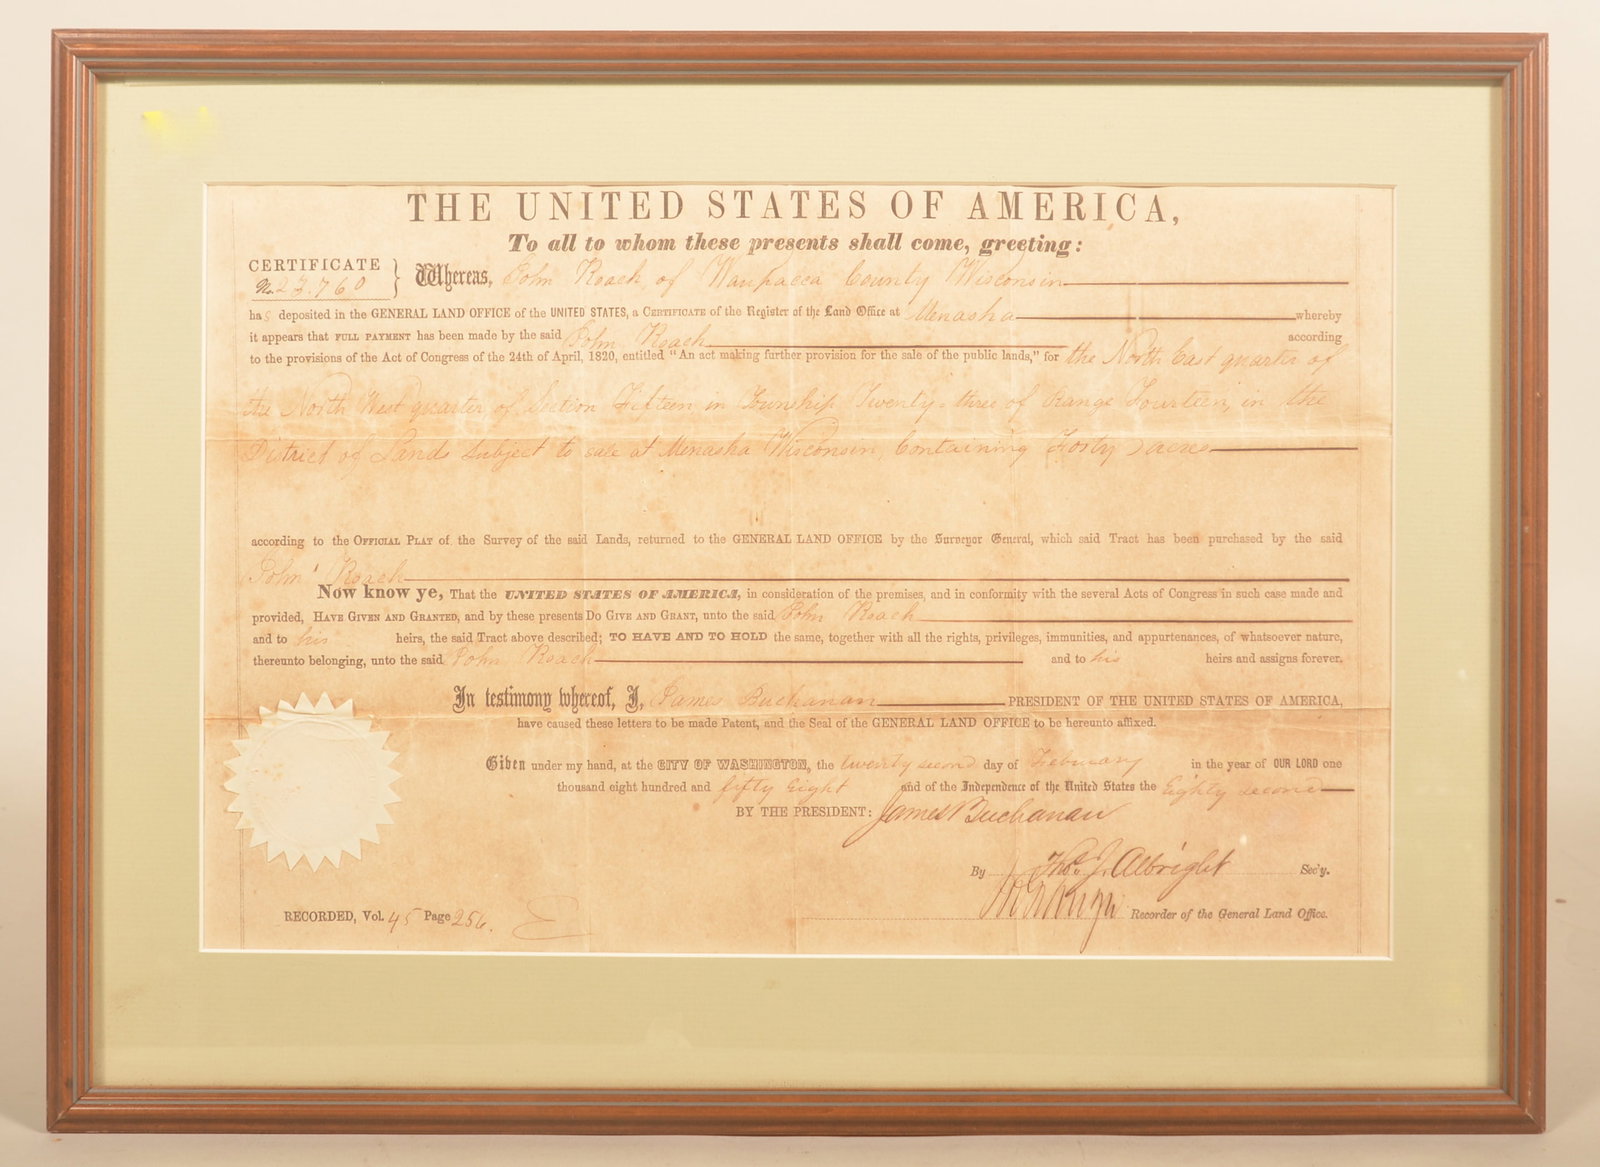 THE UNITED STATES OF AMERICA,
To all to whom these presents shall come, greeting:
CERTIFICATE
No. 23.760
Whereas, John Roach of Waupacca County Wisconsin
has deposited in the GENERAL LAND OFFICE of the UNITED STATES, a CERTIFICATE of the Register of the Land Office at Menasha whereby
it appears that FULL PAYMENT has been made by the said John Roach according
to the provisions of the Act of Congress of the 24th of April, 1820, entitled “An act making further provision for the sale of the public lands,” for the North East quarter of
the North West quarter of Section Fifteen, in Township Twenty-three of Range Fourteen, in the
District of Lands Subject to sale at Menasha Wisconsin, Containing Forty acres
according to the OFFICIAL PLAT of the Survey of the said Lands, returned to the GENERAL LAND OFFICE by the Surveyor General, which said Tract has been purchased by the said
John Roach
Now know ye, That the UNITED STATES OF AMERICA, in consideration of the premises, and in conformity with the several Acts of Congress in such case made and
provided, HAVE GIVEN AND GRANTED, and by these presents DO GIVE AND GRANT, unto the said John Roach
and to his heirs, the said Tract above described; TO HAVE AND TO HOLD the same, together with all the rights, privileges, immunities, and appurtenances, of whatsoever nature,
thereunto belonging, unto the said John Roach and to his heirs and assigns forever.
In testimony whereof, I, James Buchanan PRESIDENT OF THE UNITED STATES OF AMERICA,
have caused these letters to be made Patent, and the Seal of the GENERAL LAND OFFICE to be hereunto affixed.
Given under my hand, at the CITY OF WASHINGTON, the twenty second day of February in the year of OUR LORD one
thousand eight hundred and fifty eight and of the Independence of the United States the Eighty second
BY THE PRESIDENT: James Buchanan
By Thos. J. Albright Sec'y.
RECORDED, Vol. 45 Page 256. Recorder of the General Land Office.